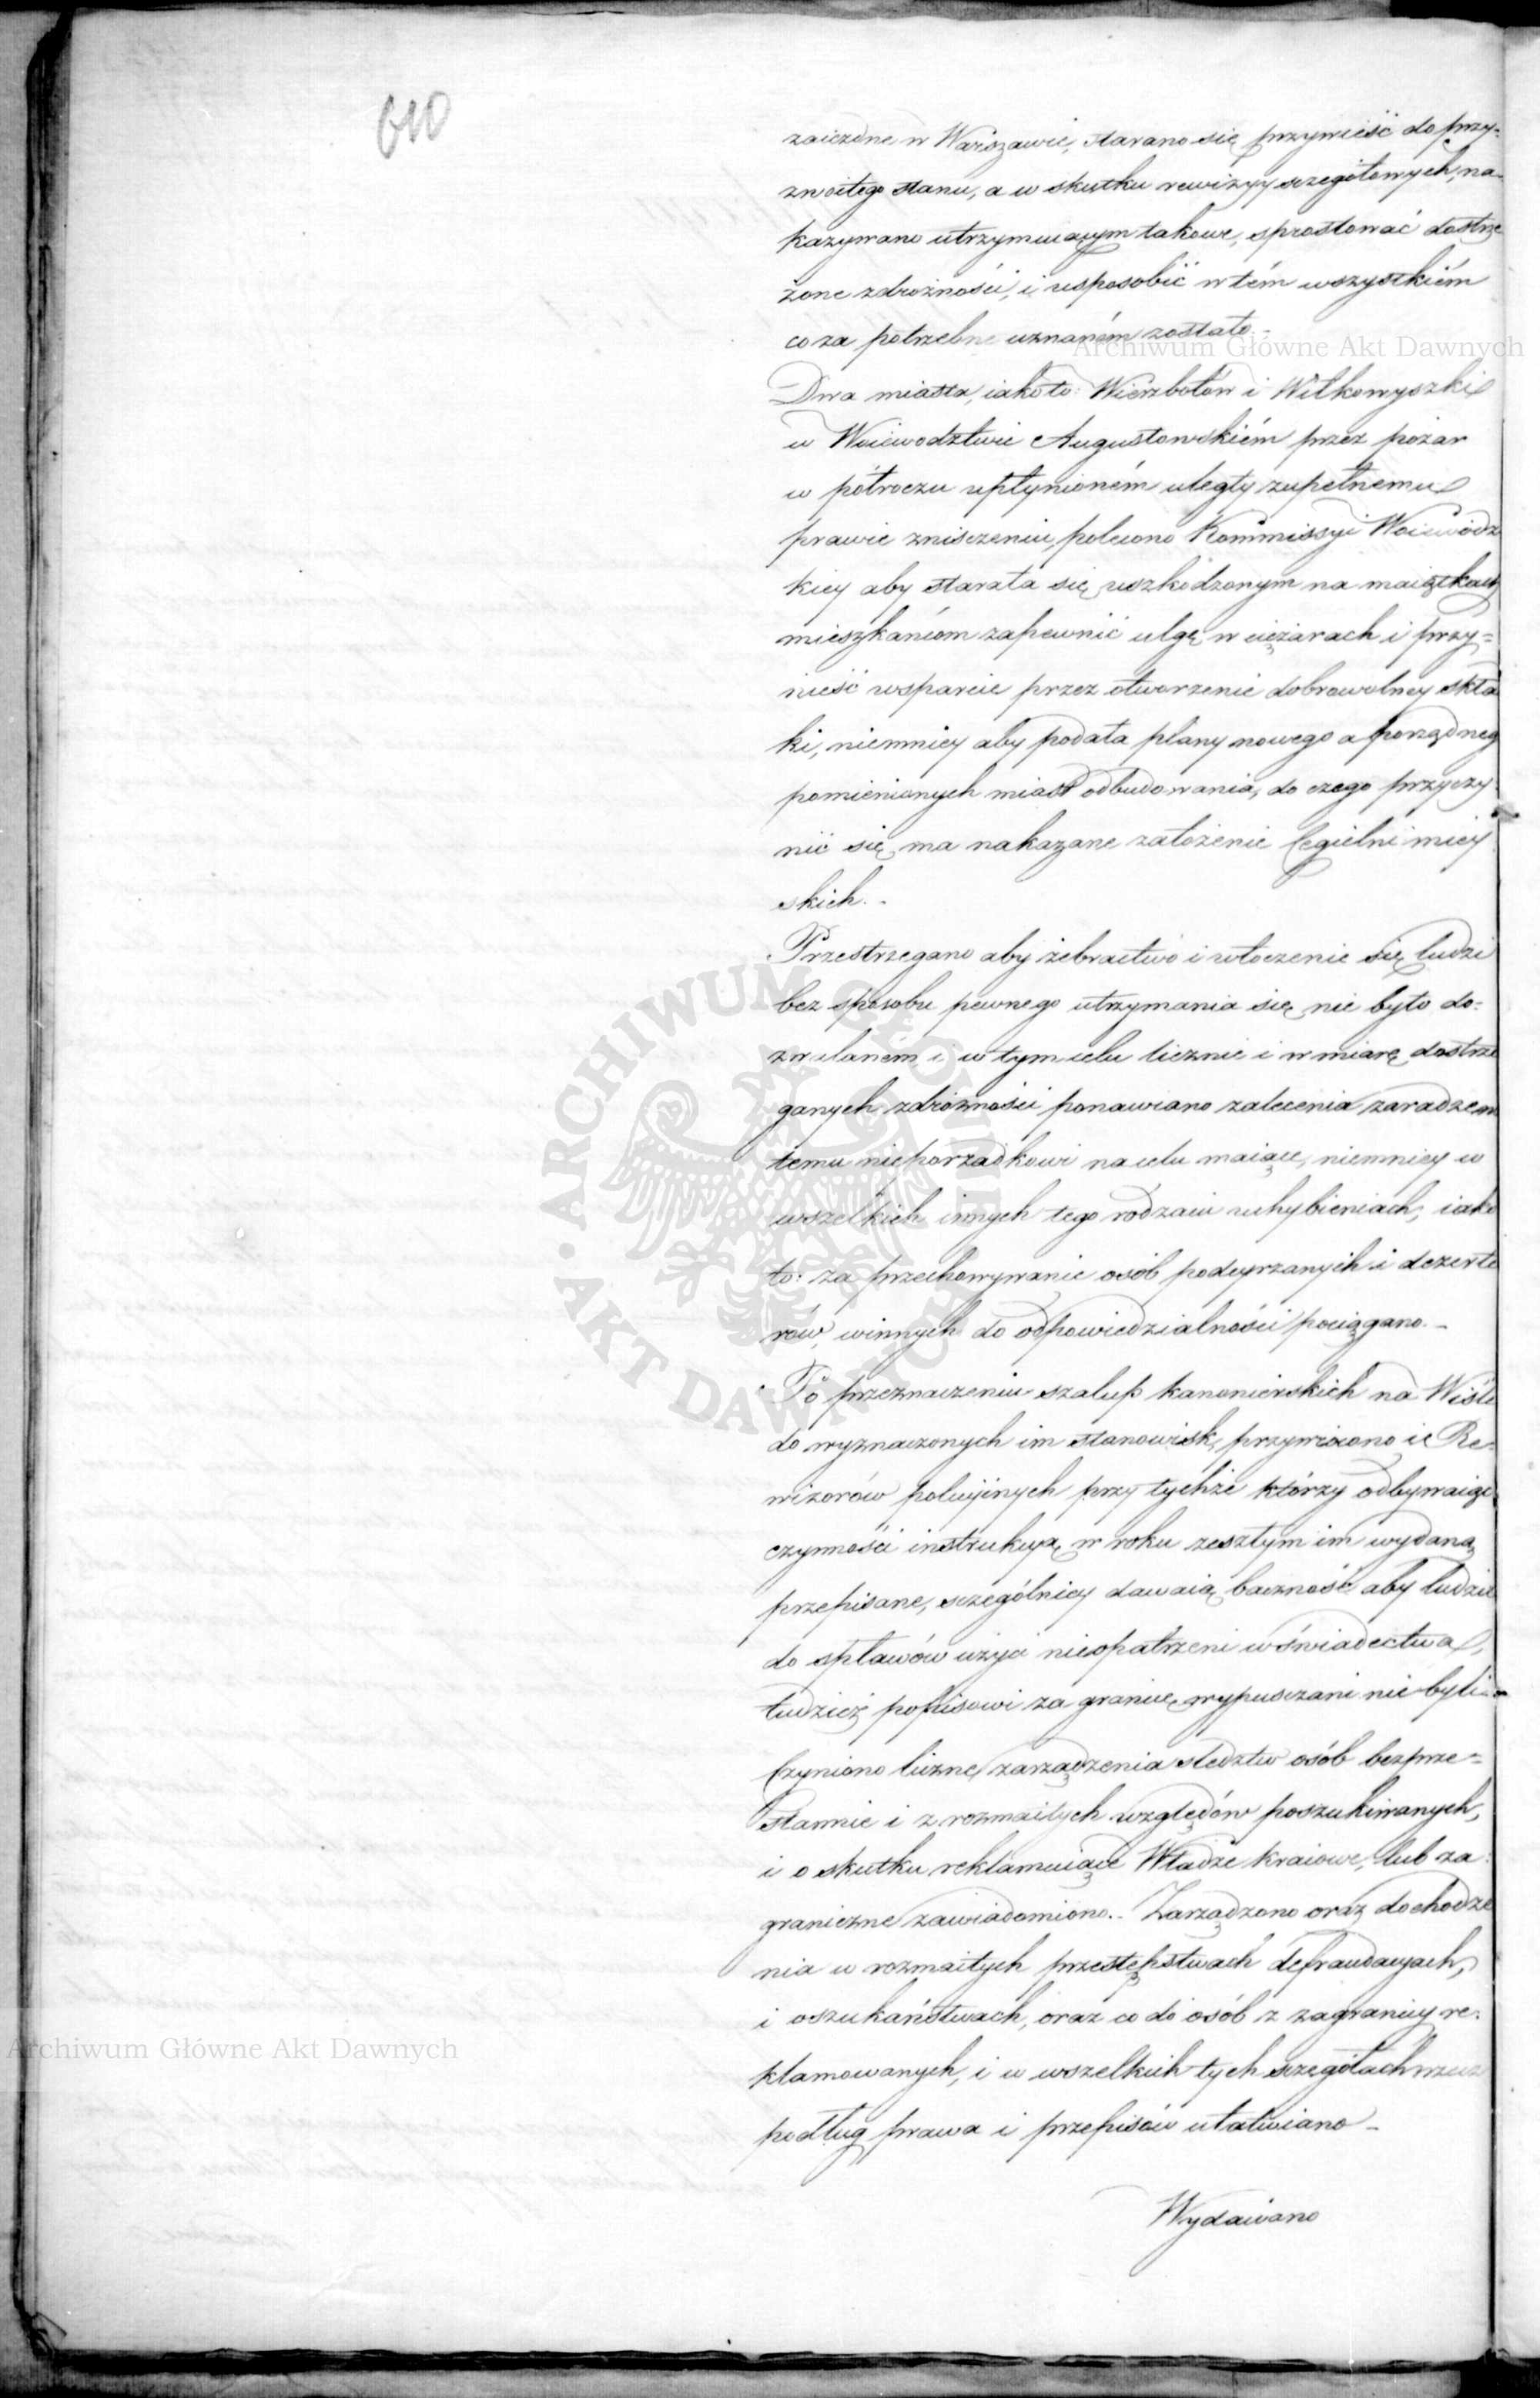 610
zaiezdne w Warszawie, starano się przywieść do przy-
zwoitego stanu, a w skutku rewizyy szczegółowych, na-
kazywano utrzymuiącym takowe, sprostować dostrze
żone zdrożności, i usposobić w tém wszystkiém
co za potrzebne uznaném zostało.-
Dwa miasta, iako to: Wierzbołów i Wiłkowyszki
w Woiewodztwie Augustowskiém przez pożar
w półroczu upłynioném uległy zupełnemu
prawie zniszczeniu, polecono Kommissyi Woiewodz
kiey aby starała się uszkodzonym na maiątkach
mieszkańcom zapewnić ulgę w ciężarach i przy-
nieść wsparcie przez otworzenie dobrowolney skła
ki, niemniey aby podała plany nowego a porządneg
pomienionych miast odbudowania, do czego przyczy
nić się ma nakazane założenie Cegielni miey
skich.-
Przestrzegano aby żebractwo i włóczenie się ludzi
bez sposobu pewnego utrzymania się nie było do-
zwolaném, i w tym celu licznie i w miarę dostrze
ganych zdrożności ponawiano zalecenia zaradzeni
temu nieporządkowi na celu maiące, niemniey w
wszelkich innych tego rodzaiu uchybieniach, iako
to: za przechowywanie osób podeyrzanych i dezerte
rów, winnych do odpowiedzialności pociągano.-
Po przeznaczeniu szalup kanonierskich na Wiśle
do wyznaczonych im stanowisk, przywrócono i Re-
wizorów policyinych przy tychże którzy odbywaiąc
czynności instrukcyą w roku zeszłym im wydaną
przepisane, szczególniey dawaią baczność aby ludzie
do spławów użyci nieopatrzeni w świadectwa,
tudzież popisowi za granicę wypuszczani nie byli.-
Czyniono liczne zarządzenia śledztw osób bezprze-
stannie i z rozmaitych względów poszukiwanych,
i o skutku reklamuiące Władze kraiowe, lub za
graniczne zawiadomiono.- Zarządzono oraz dochodze
nia w rozmaitych przestępstwach defraudacyach,
i oszukaństwach, oraz co do osób z zagranicy re-
klamowanych, i w wszelkich tych szczegółach rzecz
podług prawa i przepisów ułatwiano-
Wydawano
Archiwum Główne Akt Dawnych
Archiwum Główne Akt Dawnych
ARCHIWUM GŁÓWNE AKT DAWNYCH